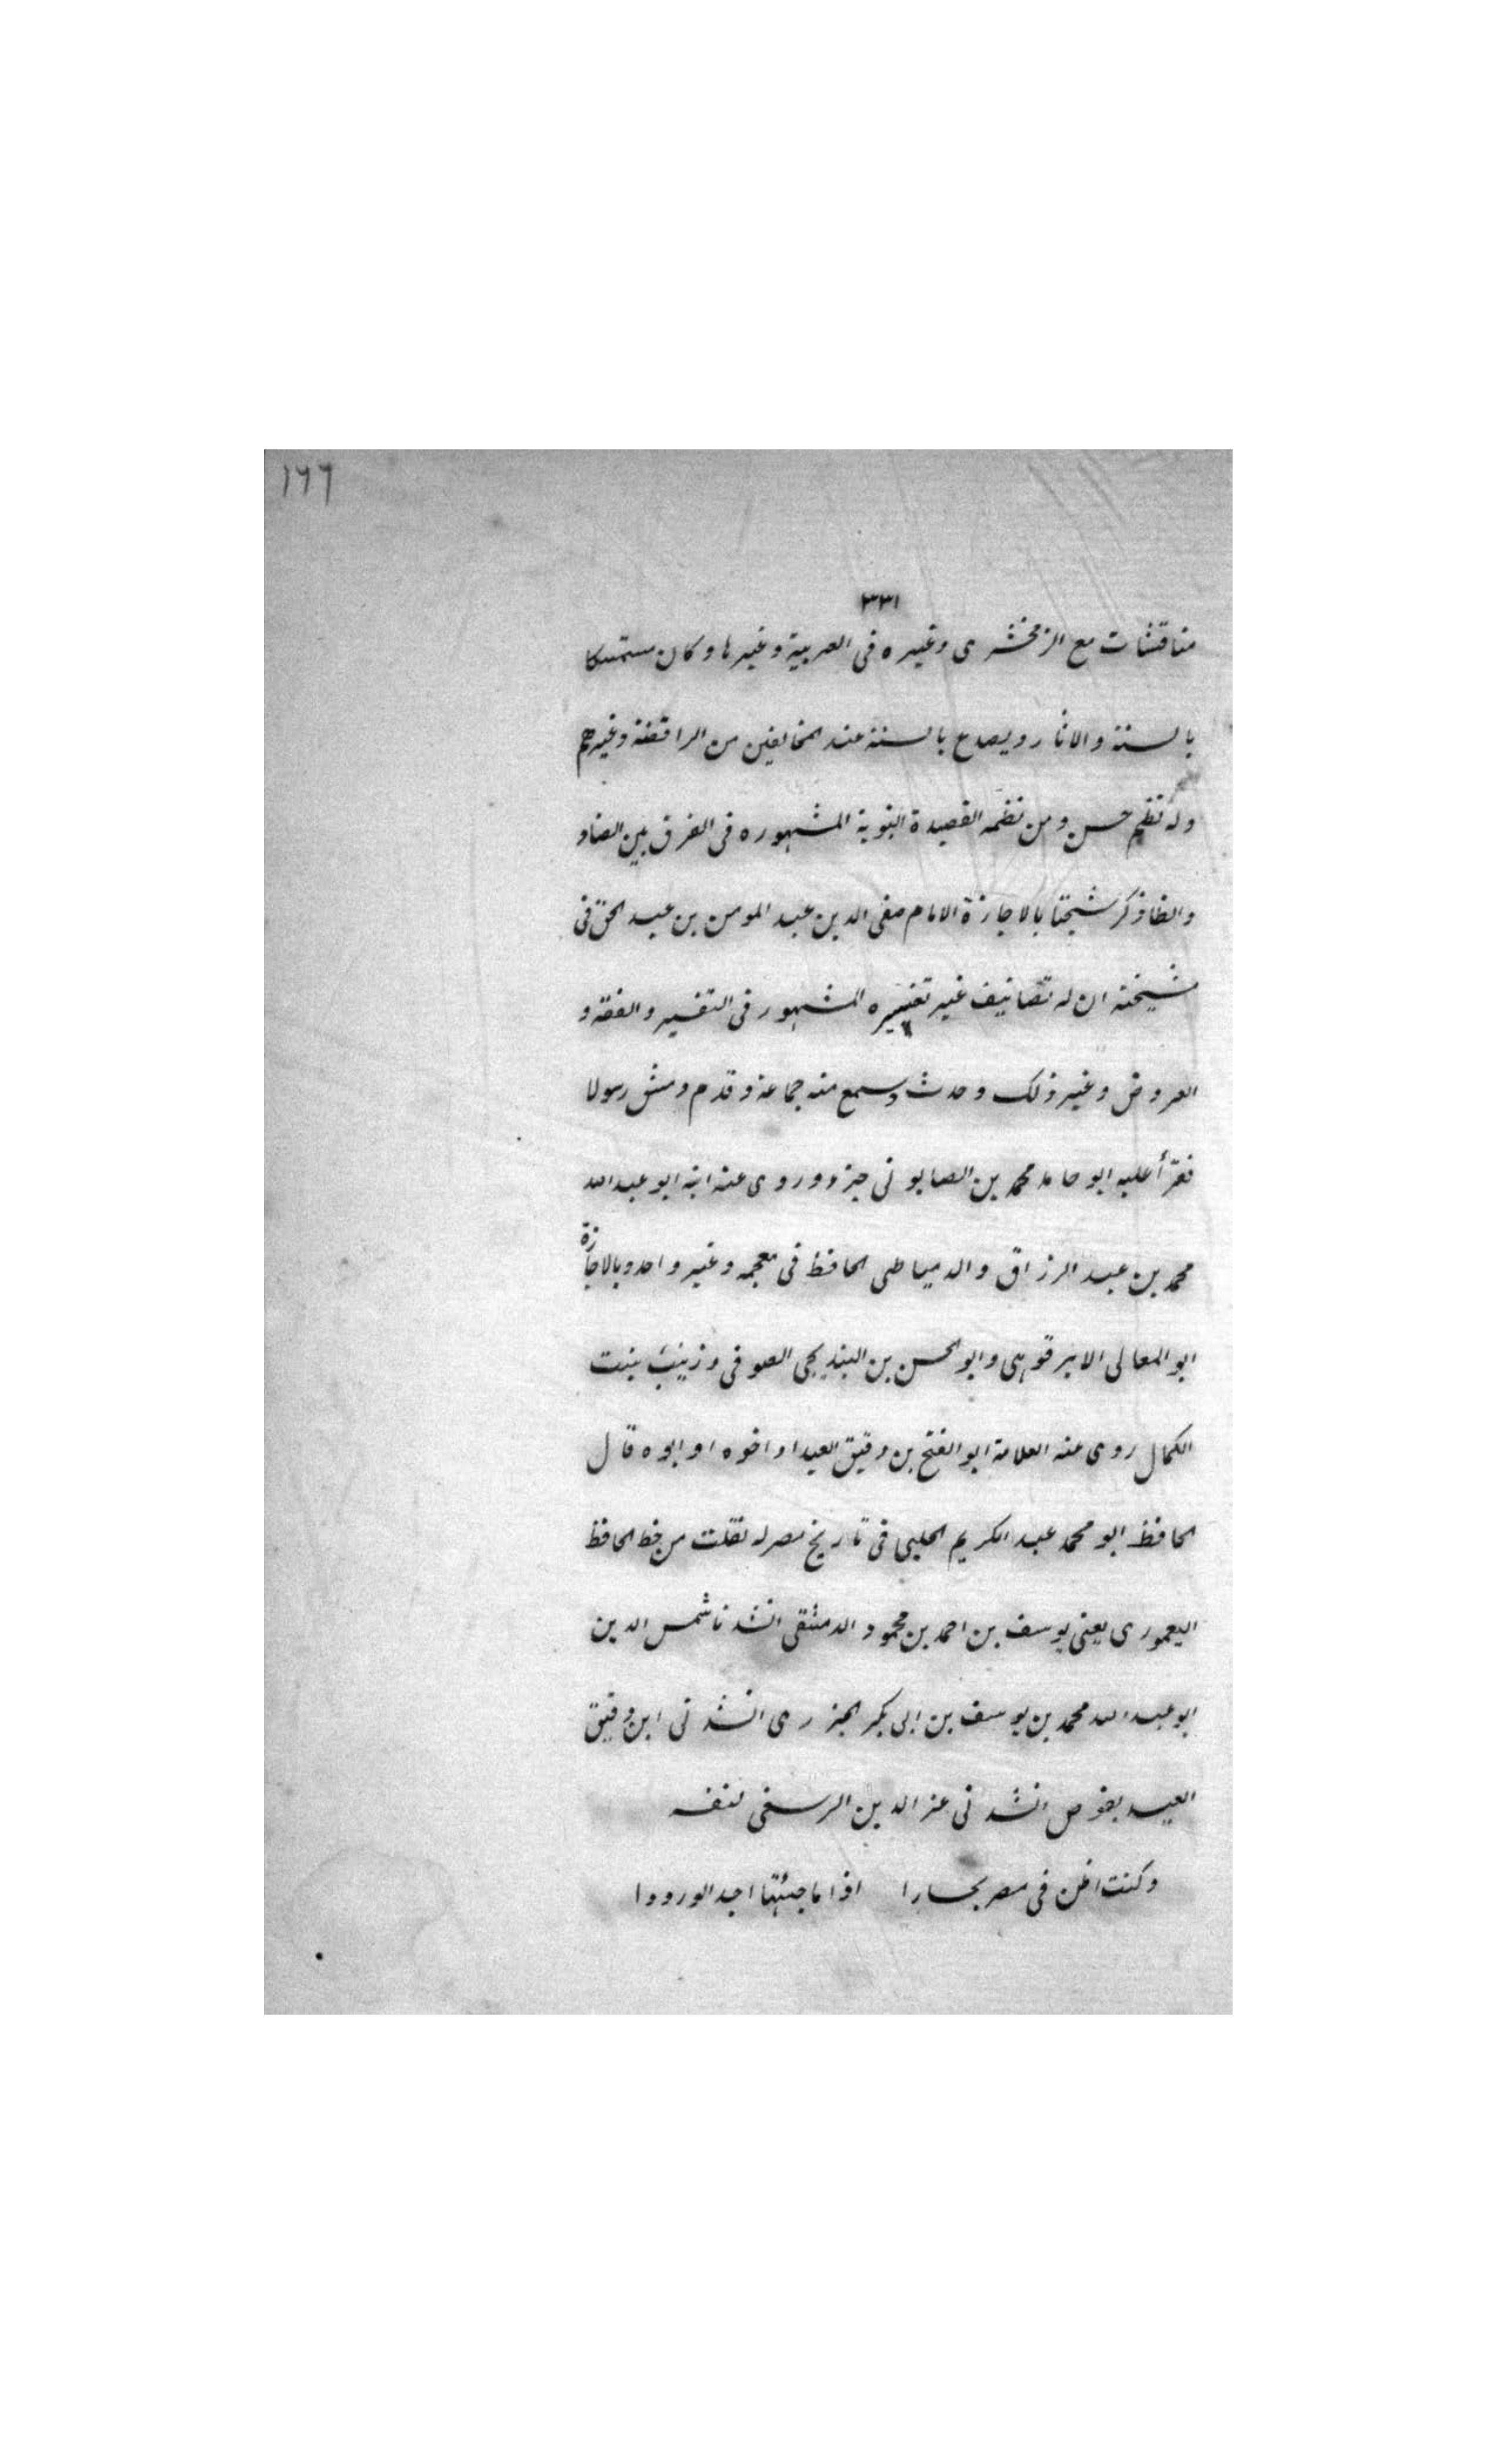 ١٦٦
٣٣١
مناقشات مع الزمخشرى وغيره فى العربية وغيرها وكان متمسكا
بالسنة والاثار ويصدع بالسنة عند المخالفين من الرافضة وغيرهم
وله نظم حسن ومن نظمه القصيدة النونية المشهوره فى الفرق بين الضاد
والظا وذكر شيخنا بالاجازة الامام صفى الدين عبد المومن بن عبد الحق فى
مشيخته ان له تصانيف غير تفسيره المشهور فى التفسير والفقه و
العروض وغير ذلك وحدث وسمع منه جماعة وقدم دمشق رسولا
فقرأ عليه ابو حامد محمد بن الصابونى جزء وروى عنه ابنه ابو عبد الله
محمد بن عبد الرزاق والدمياطى الحافظ فى معجمه وغير واحد وبالاجازة
ابو المعالى الابرقوهى وابو الحسن بن البندنيجى الصوفى وزينب بنت
الكمال روى عنه العلامة ابو الفتح بن دقيق العيد او اخوه او ابوه قال
الحافظ ابو محمد عبد الكريم الحلبى فى تاريخ مصر له نقلت من خط الحافظ
اليعمورى يعنى يوسف بن احمد بن محمود الدمشقى انشدنا شمس الدين
ابو عبد الله محمد بن يوسف بن ابى بكر الجزرى انشدنى ابن دقيق
العيد بقوص انشدنى عز الدين الرسعنى لنفسه
وكنت اظن فى مصر بحارا اذا ما جئتها اجد الورودا